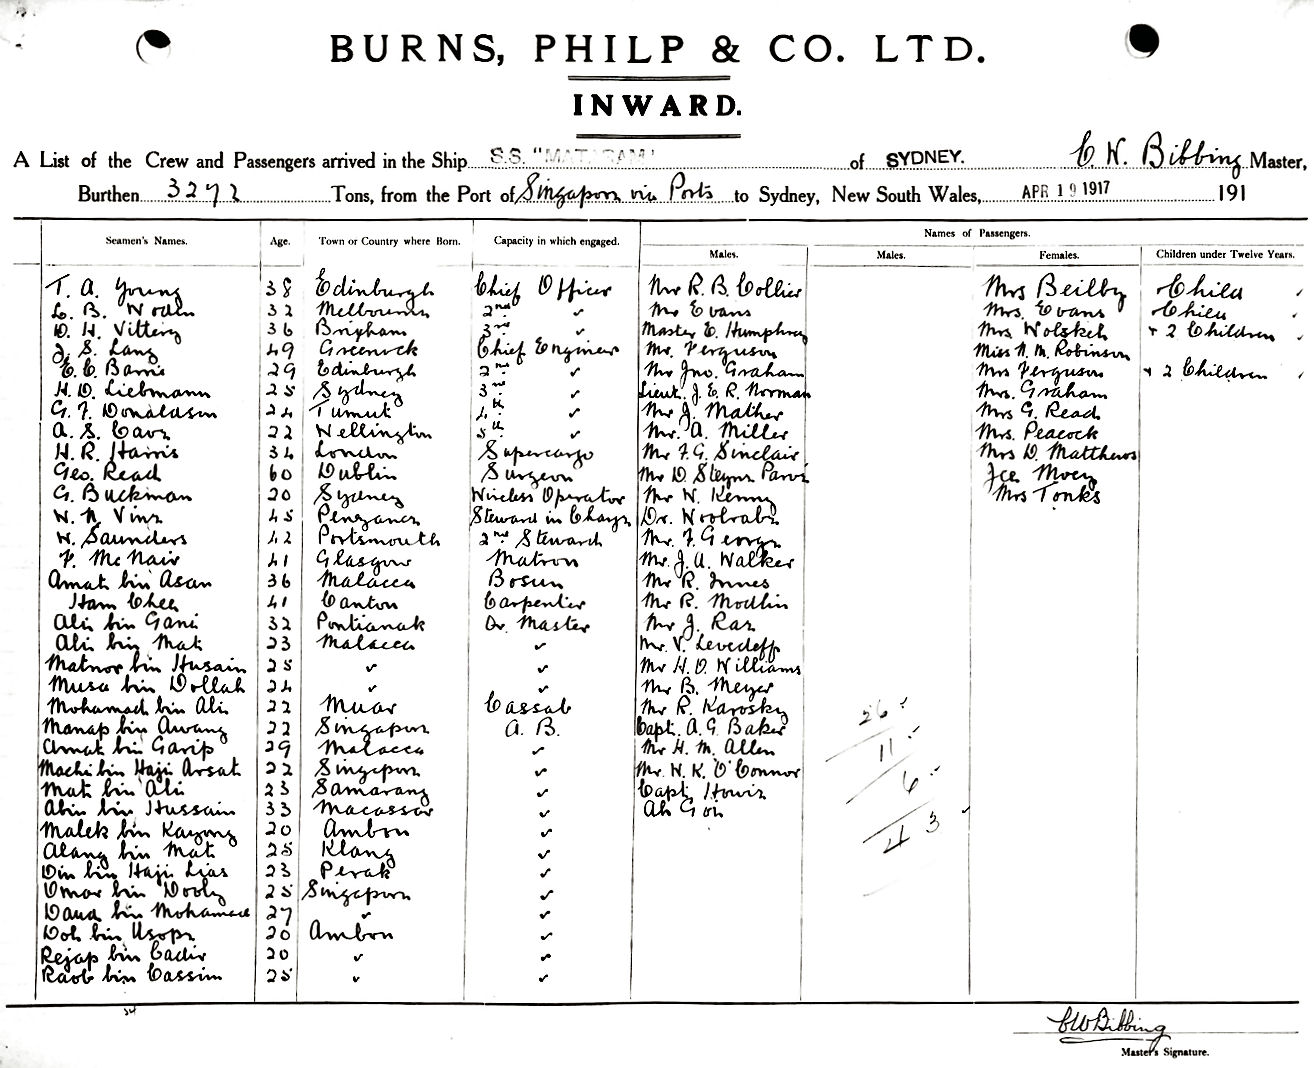 BURNS, PHILP & CO. LTD.
INWARD.
A List of the Crew and Passengers arrived in the Ship S.S. "MATARAM" of SYDNEY. C. W. Bibbing Master,
Burthen 3272 Tons, from the Port of Singapore via Ports to Sydney, New South Wales, APR 19 1917 191
Names of Passengers.
Seamen's Names. Age. Town or Country where Born. Capacity in which engaged. Males. Males. Females. Children under Twelve Years.
T. A. Young 38 Edinburgh Chief Officer Mr R. B. Collier Mrs Beilby Child
L. B. 32 Melbourne 2nd ✓ Mr Evans Mrs. Evans Child
D. H. Vittery 36 Brixham 3rd ✓ Master E. Humphrey Mrs. Wolskel + 2 Children
J. S. Lang 49 Greenock Chief Engineer Mr. Ferguson Miss N. M. Robinson
29 Edinburgh 2nd ✓ Mr Jno. Graham Mrs Ferguson + 2 Children
H. D. Liebmann 25 Sydney 3rd ✓ Lieut. J. E. R. Norman Mrs. Graham
G. F. Donaldson 24 Tumut 4th ✓ Mr J. Mather Mrs G. Read
A. S. 22 Wellington 5th ✓ Mr. A. Miller Mrs. Peacock
H. R. Harris 34 London Supercargo Mr F. G. Sinclair Mrs D. Matthews
Geo. Read 60 Dublin Surgeon Mr D. Steyne
G. Buckman 20 Sydney Wireless Operator Mr W. Kenny Mrs Tonks
W. N. Vine 45 Penzance Steward in Charge Dr. Woolrabe
W. Saunders 42 Portsmouth 2nd Steward Mr. F. George
F. McNair 41 Glasgow Matron Mr. J. A. Walker
Amat bin Asan 36 Malacca Bosun Mr R. Innes
Ham Chee 41 Canton Carpenter Mr R. Modlin
Ali bin Gani 32 Pontianak Qr. Master Mr J. Rae
Ali bin Mat 23 Malacca ✓ Mr. V. Levedeff
Matnor bin Husain 25 ✓ ✓ Mr H. D. Williams
Musa bin Dollah 24 ✓ ✓ Mr B. Meyer
Mohamad bin Ali 22 Muar Cassab Mr R. Karosky
Manap bin Awang 22 Singapore A. B. Capt. A. G. Baker
Amat bin Garip 29 Malacca ✓ Mr H. M. Allen
Machi bin Haji Arsat 22 Singapore ✓ Mr. N. K. O'Connor
Mat bin Ali 23 Samarang ✓ Capt. Howie
Abin bin Hussain 33 Macassar ✓ Ah Goi
Malek bin Kayong 20 Ambon ✓
Alang bin Mat 25 Klang ✓
Din bin Haji Lias 23 Perak ✓
Omar bin Dooly 25 Singapore ✓
Daud bin Mohamad 27 ✓ ✓
Doh bin Usope 20 Ambon ✓
Rejap bin Cadir 20 ✓ ✓
Raob bin Cassim 25 ✓ ✓
26
11
6
43
34
CWBibbing
Master's Signature.